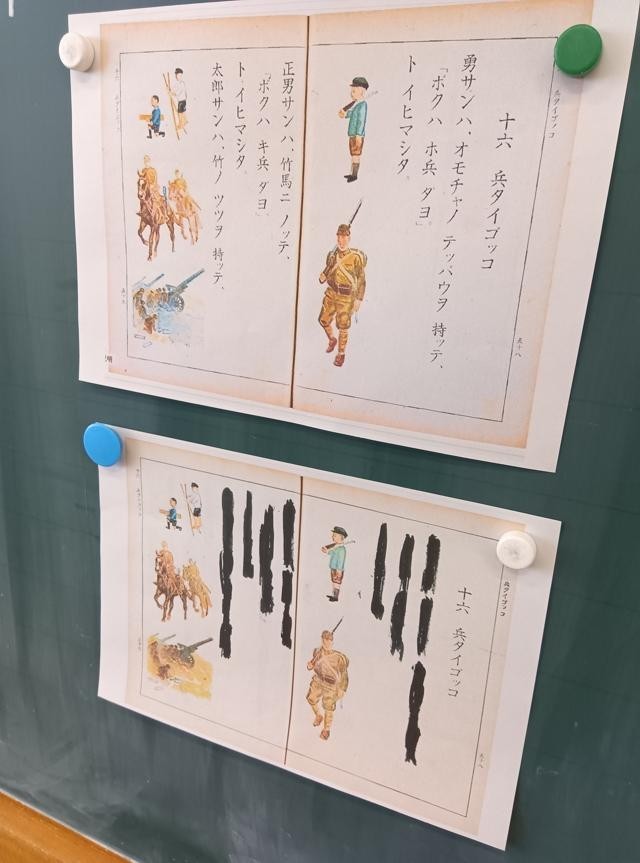 兵タイゴッコ
十六 兵タイゴッコ
勇サンハ、オモチャノ テッパウヲ 持ッテ、
「ボクハ ホ兵 ダヨ」。
ト イヒマシタ。
五十八
正男サンハ、竹馬ニ ノッテ、
「ボクハ キ兵 ダヨ」。
ト イヒマシタ。
太郎サンハ、竹ノ ツツヲ 持ッテ、
兵タイゴッコ
十六 兵タイゴッコ
五十八